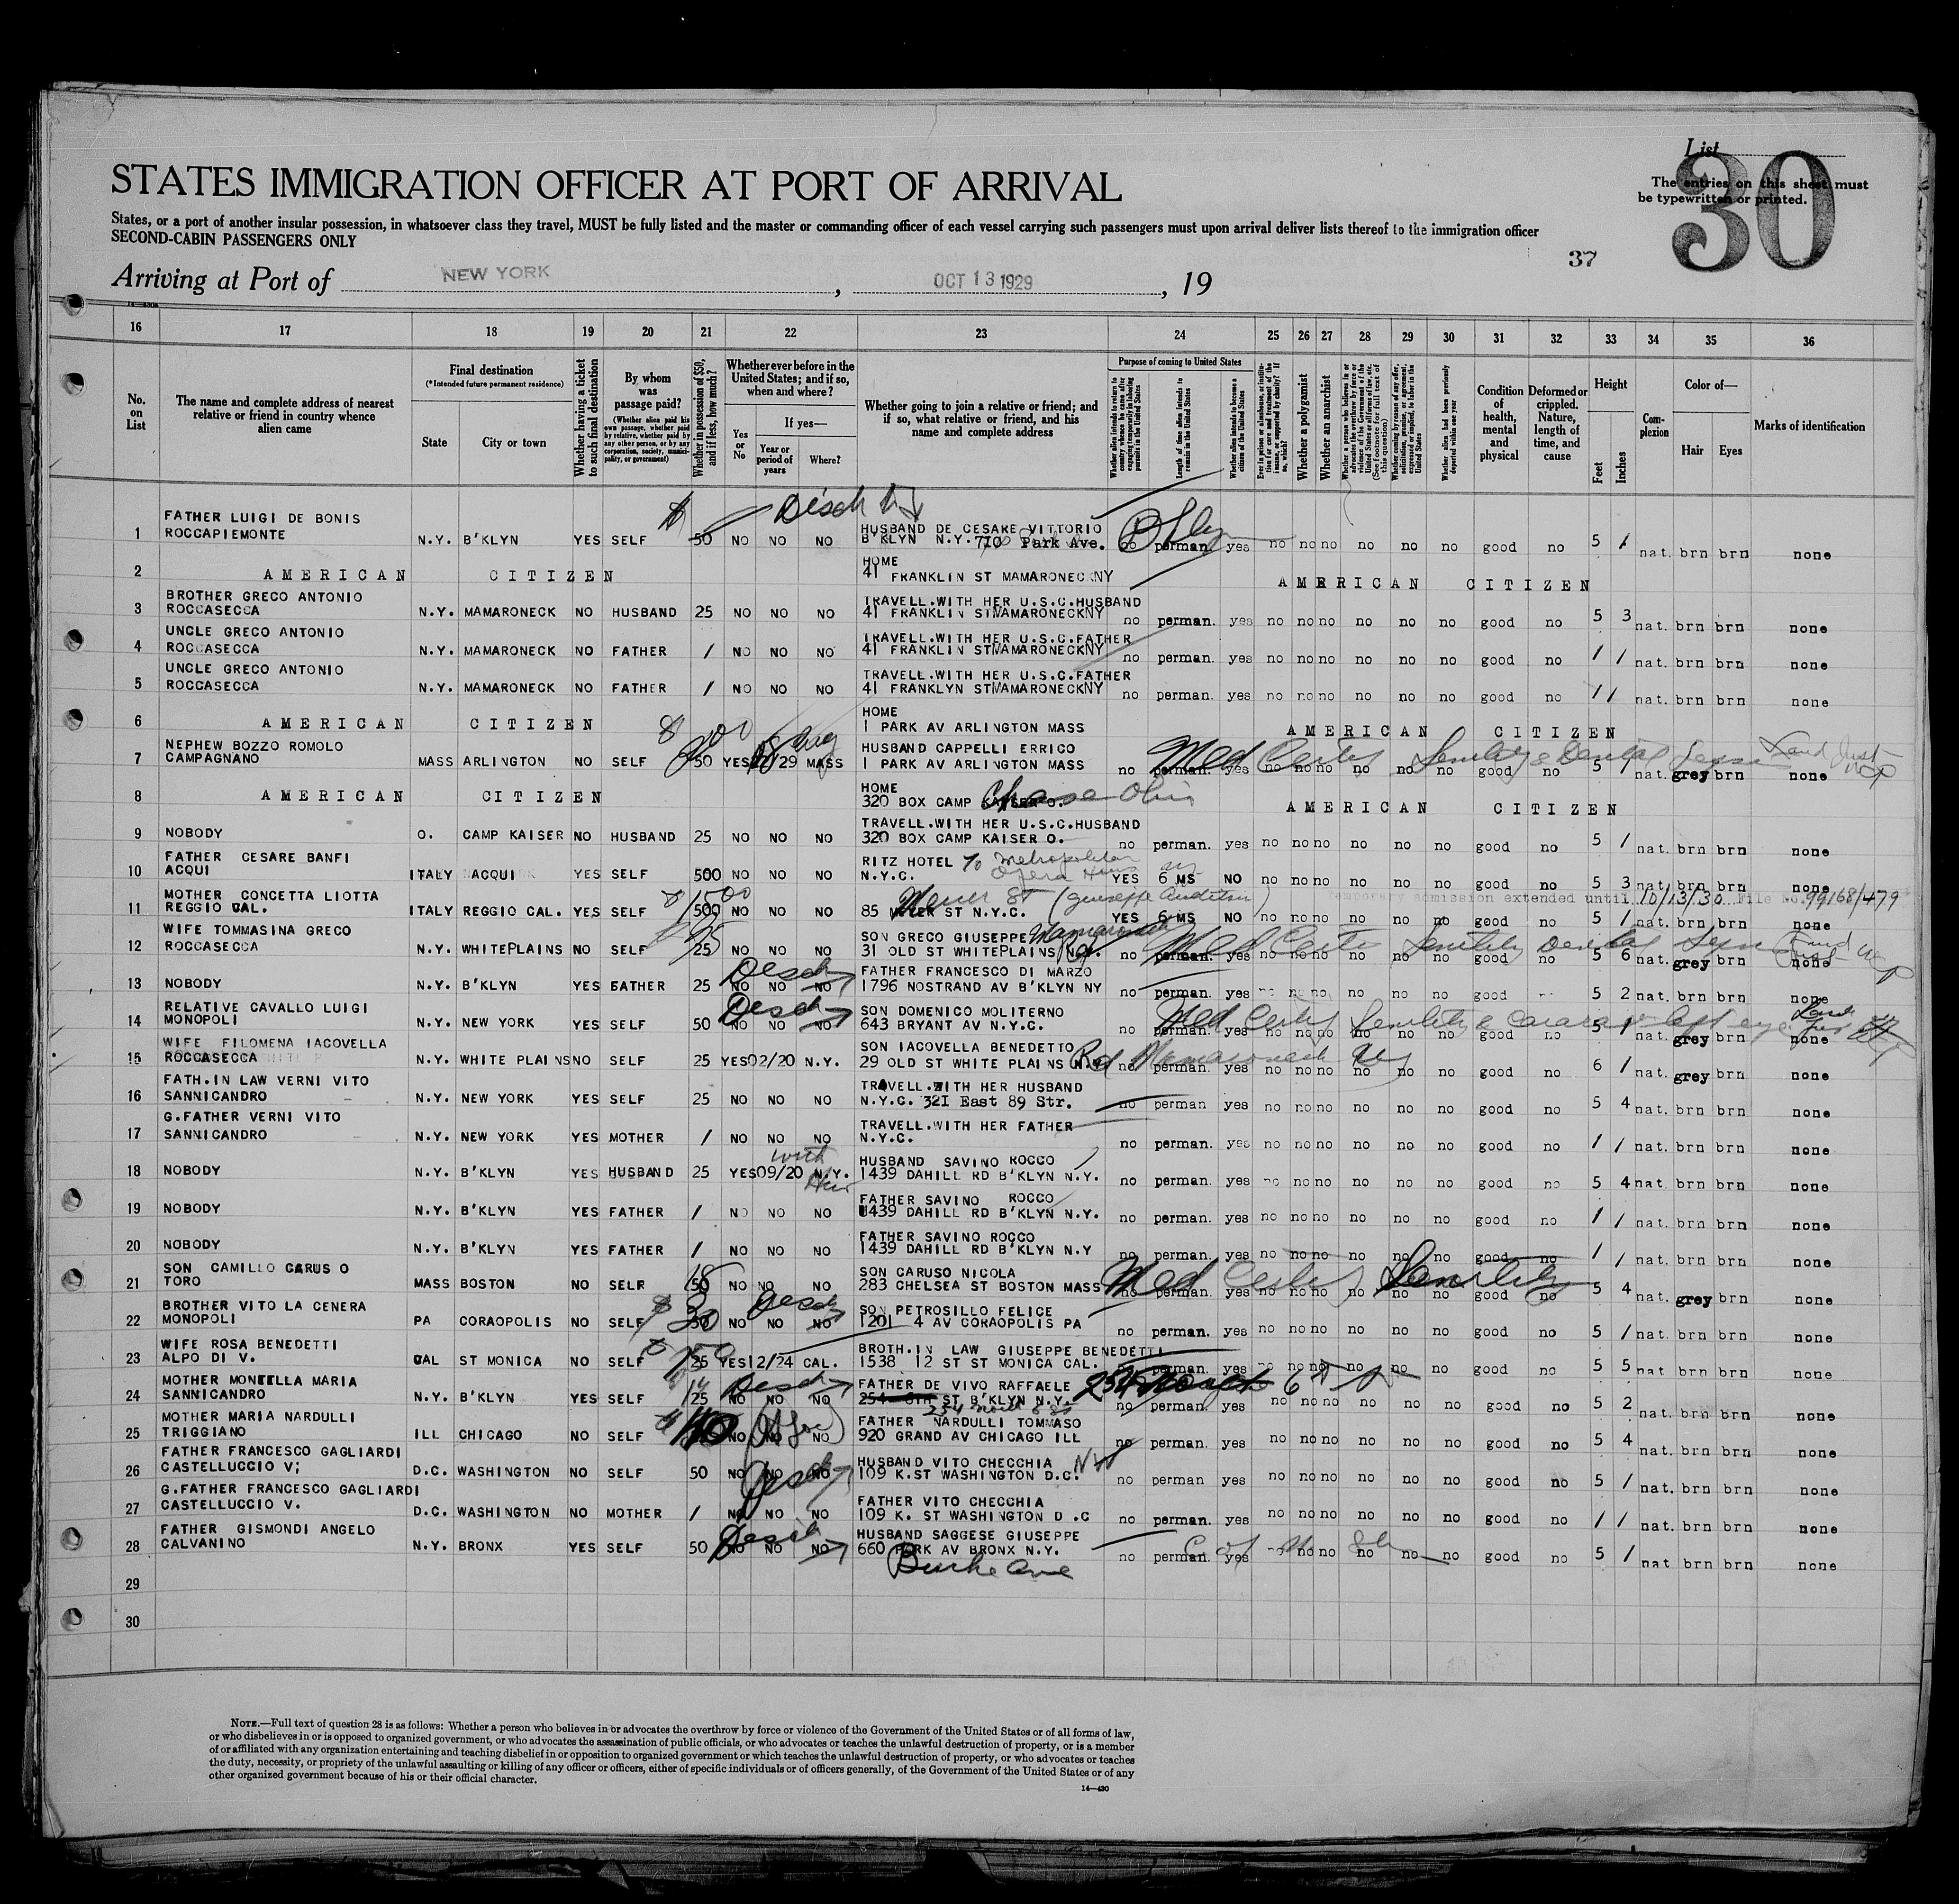 List
30
The entries on this sheet must
be typewritten or printed.
STATES IMMIGRATION OFFICER AT PORT OF ARRIVAL
States, or a port of another insular possession, in whatsoever class they travel, MUST be fully listed and the master or commanding officer of each vessel carrying such passengers must upon arrival deliver lists thereof to the immigration officer
SECOND-CABIN PASSENGERS ONLY
37
Arriving at Port of NEW YORK, OCT 13 1929, 19
16 17 18 19 20 21 22 23 24 25 26 27 28 29 30 31 32 33 34 35 36
No. on List
The name and complete address of nearest relative or friend in country whence alien came
Final destination
(*Intended future permanent residence)
State
City or town
Whether having a ticket to such final destination
By whom was passage paid?
(Whether alien paid his own passage, whether paid by relative, whether paid by any other person, or by any corporation, society, municipality, or government)
Whether in possession of $50, and if less, how much?
Whether ever before in the United States; and if so, when and where?
Yes or No
If yes—
Year or period of years
Where?
Whether going to join a relative or friend; and if so, what relative or friend, and his name and complete address
Purpose of coming to United States
Whether alien intends to return to country whence he came after engaging temporarily in laboring pursuits in the United States
Length of time alien intends to remain in the United States
Whether alien intends to become a citizen of the United States
Ever in prison or almshouse, or institution for care and treatment of the insane, or supported by charity? If so, which?
Whether a polygamist
Whether an anarchist
Whether alien had been previously deported within one year
Condition of health, mental and physical
Deformed or crippled. Nature, length of time, and cause
Height
Feet
Inches
Complexion
Color of—
Hair
Eyes
Marks of identification
Disch
1 FATHER LUIGI DE BONIS ROCCAPIEMONTE N.Y. B'KLYN YES SELF 50 NO NO NO HUSBAND DE CESARE VITTORIO B'KLYN N.Y. 710 Park Ave. no perman. yes no no no no no no good no 5 / nat. brn brn none
2 AMERICAN CITIZEN HOME 41 FRANKLIN ST MAMARONECKNY AMERICAN CITIZEN
3 BROTHER GRECO ANTONIO ROCCASECCA N.Y. MAMARONECK NO HUSBAND 25 NO NO NO TRAVELL.WITH HER U.S.C.HUSBAND 41 FRANKLIN STMAMARONECKNY no perman. yes no no no no no no good no 5 3 nat. brn brn none
4 UNCLE GRECO ANTONIO ROCCASECCA N.Y. MAMARONECK NO FATHER / NO NO NO TRAVELL.WITH HER U.S.C.FATHER 41 FRANKLIN STMAMARONECKNY no perman. yes no no no no no no good no / / nat. brn brn none
5 UNCLE GRECO ANTONIO ROCCASECCA N.Y. MAMARONECK NO FATHER / NO NO NO TRAVELL.WITH HER U.S.C.FATHER 41 FRANKLYN STMAMARONECKNY no perman. yes no no no no no no good no / / nat. brn brn none
6 AMERICAN CITIZEN HOME 1 PARK AV ARLINGTON MASS AMERICAN CITIZEN
7 NEPHEW BOZZO ROMOLO CAMPAGNANO MASS ARLINGTON NO SELF 50 YES /29 MASS HUSBAND CAPPELLI ERRICO 1 PARK AV ARLINGTON MASS no perman. yes no no no no no no good no 5 / nat. grey brn none
Med Certs Senility & Dental
8 AMERICAN CITIZEN HOME 320 BOX CAMP KAISER O. Chase Ohio AMERICAN CITIZEN
9 NOBODY O. CAMP KAISER NO HUSBAND 25 NO NO NO TRAVELL.WITH HER U.S.C.HUSBAND 320 BOX CAMP KAISER O. no perman. yes no no no no no no good no 5 / nat. brn brn none
10 FATHER CESARE BANFI ACQUI ITALY ACQUI YES SELF 500 NO NO NO RITZ HOTEL N.Y.C. Metropolitan Opera YES 6 MS NO no no no no no no good no 5 3 nat. brn brn none
11 MOTHER CONCETTA LIOTTA REGGIO CAL. ITALY REGGIO CAL. YES SELF 500 NO NO NO 85 ST N.Y.C. YES 6 MS NO no no no no no no good no 5 / nat. brn brn none
temporary admission extended until 10/13/30 File No. 99168/479
12 WIFE TOMMASINA GRECO ROCCASECCA N.Y. WHITEPLAINS NO SELF 25 NO NO NO SON GRECO GIUSEPPE 31 OLD ST WHITEPLAINS N.Y. Mamaroneck Rd. no perman. yes no no no no no no good no 5 6 nat. grey brn none
Med Certs Senility Dental
13 NOBODY N.Y. B'KLYN YES FATHER 25 NO NO NO Desch FATHER FRANCESCO DI MARZO 1796 NOSTRAND AV B'KLYN NY no perman. yes no no no no no no good no 5 2 nat. brn brn none
14 RELATIVE CAVALLO LUIGI MONOPOLI N.Y. NEW YORK YES SELF 50 NO NO NO Desch SON DOMENICO MOLITERNO 643 BRYANT AV N.Y.C. no perman. yes no no no no no no good no 5 1 nat. grey brn none
Med Certs Senility & left eye
15 WIFE FILOMENA IACOVELLA ROCCASECCA N.Y. WHITE PLAINS NO SELF 25 YES 02/20 N.Y. SON IACOVELLA BENEDETTO 29 OLD ST WHITE PLAINS N.Y. Rd Mamaroneck no perman. yes no no no no no no good no 6 / nat. grey brn none
16 FATH.IN LAW VERNI VITO SANNICANDRO N.Y. NEW YORK YES SELF 25 NO NO NO TRAVELL.WITH HER HUSBAND N.Y.C. 32I East 89 Str. no perman yes no no no no no no good no 5 4 nat. brn brn none
17 G.FATHER VERNI VITO SANNICANDRO N.Y. NEW YORK YES MOTHER / NO NO NO TRAVELL.WITH HER FATHER N.Y.C. no perman. yes no no no no no no good no / / nat. brn brn none
18 NOBODY N.Y. B'KLYN YES HUSBAND 25 YES 09/20 N.Y. with HUSBAND SAVINO ROCCO 1439 DAHILL RD B'KLYN N.Y. no perman. yes no no no no no no good no 5 4 nat. brn brn none
19 NOBODY N.Y. B'KLYN YES FATHER / NO NO NO FATHER SAVINO ROCCO 1439 DAHILL RD B'KLYN N.Y. no perman. yes no no no no no no good no / / nat. brn brn none
20 NOBODY N.Y. B'KLYN YES FATHER / NO NO NO FATHER SAVINO ROCCO 1439 DAHILL RD B'KLYN N.Y no perman. yes no no no no no no good no / / nat. brn brn none
21 SON CAMILLO CARUSO TORO MASS BOSTON NO SELF 50 NO NO NO SON CARUSO NICOLA 283 CHELSEA ST BOSTON MASS no perman. yes no no no no no no good no 5 4 nat. grey brn none
Med Certs Senility
22 BROTHER VITO LA CENERA MONOPOLI PA CORAOPOLIS NO SELF 30 NO NO NO Desch SON PETROSILLO FELICE 1201 4 AV CORAOPOLIS PA no perman. yes no no no no no no good no 5 / nat. brn brn none
23 WIFE ROSA BENEDETTI ALPO DI V. CAL ST MONICA NO SELF 25 YES 12/24 CAL. BROTH.IN LAW GIUSEPPE BENEDETTI 1538 12 ST ST MONICA CAL. perman. yes no no no no no no good no 5 5 nat brn brn none
24 MOTHER MONTELLA MARIA SANNICANDRO N.Y. B'KLYN YES SELF 25 NO NO NO Desch FATHER DE VIVO RAFFAELE 254 6TH ST B'KLYN N.Y. no perman. yes no no no no no no good no 5 2 nat. brn brn none
25 MOTHER MARIA NARDULLI TRIGGIANO ILL CHICAGO NO SELF NO NO NO FATHER NARDULLI TOMMASO 920 GRAND AV CHICAGO ILL no perman. yes no no no no no no good no 5 4 nat. brn brn none
26 FATHER FRANCESCO GAGLIARDI CASTELLUCCIO V; D.C. WASHINGTON NO SELF 50 NO NO NO Desch HUSBAND VITO CHECCHIA 109 K.ST WASHINGTON D.C. NW no perman yes no no no no no no good no 5 / nat. brn brn none
27 G.FATHER FRANCESCO GAGLIARDI CASTELLUCCIO V. D.C. WASHINGTON NO MOTHER / NO NO NO FATHER VITO CHECCHIA 109 K. ST WASHINGTON D .C no perman. yes no no no no no no good no / / nat. brn brn none
28 FATHER GISMONDI ANGELO CALVANINO N.Y. BRONX YES SELF 50 NO NO NO Desch HUSBAND SAGGESE GIUSEPPE 660 PARK AV BRONX N.Y. Burke Ave no perman. yes no no no no no no good no 5 / nat. brn brn none
29
30
NOTE.—Full text of question 28 is as follows: Whether a person who believes in or advocates the overthrow by force or violence of the Government of the United States or of all forms of law,
or who disbelieves in or is opposed to organized government, or who advocates the assassination of public officials, or who advocates or teaches the unlawful destruction of property, or is a member
of or affiliated with any organization entertaining and teaching disbelief in or opposition to organized government or which teaches the unlawful destruction of property, or who advocates or teaches
the duty, necessity, or propriety of the unlawful assaulting or killing of any officer or officers, either of specific individuals or of officers generally, of the Government of the United States or of any
other organized government because of his or their official character.
14—430